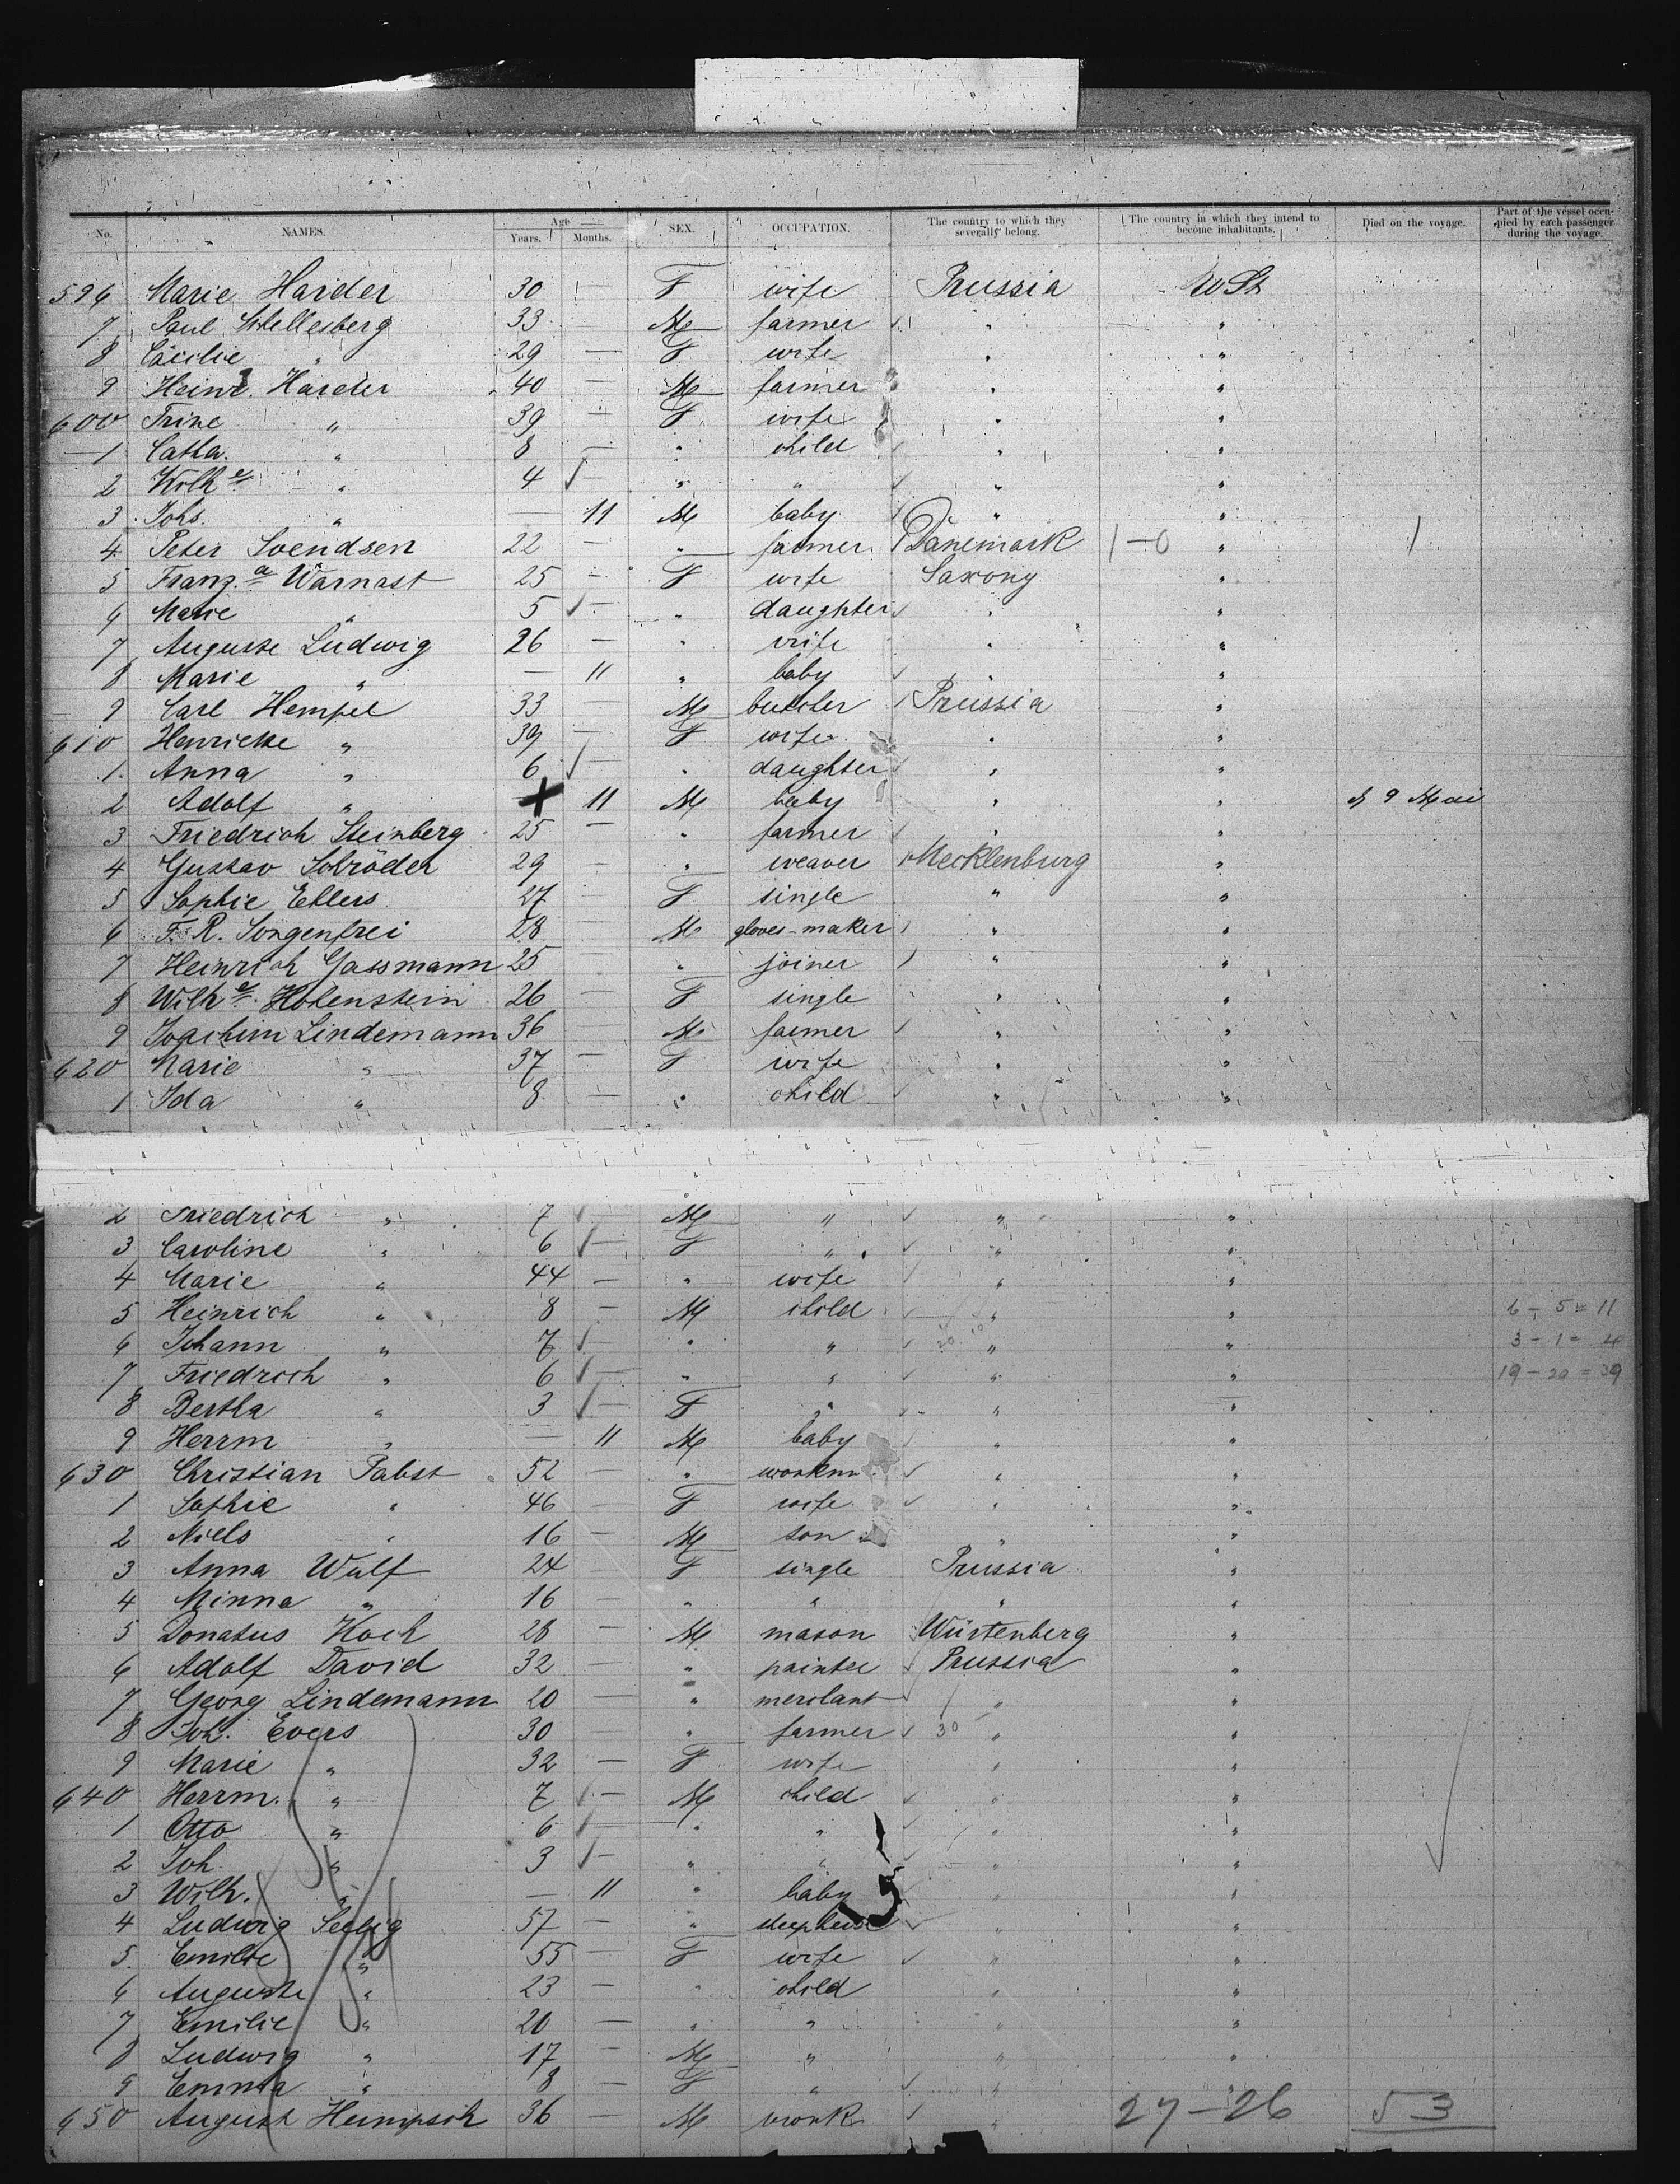 No. NAMES. Age Years. Months. SEX. OCCUPATION. The country to which they severally belong. The country in which they intend to become inhabitants. Died on the voyage. Part of the vessel occupied by each passenger during the voyage.
596 Marie Harder 30 — F wife Prussia U St
7 Paul 33 M farmer " "
8 Cäcilie " 29 — F wife " "
9 Heinr. Harder 40 — M farmer " "
600 Trine " 39 — F wife " "
1 Catha. " 8 — " child " "
2 Wilhe " 4 — " " " "
3 Johs. " — 11 M baby " "
4 Peter Svendsen 22 — " farmer Danemark 1—0 " 1
5 Franz.a Warnast 25 — F wife Saxony "
6 Marie " 5 — " daughter " "
7 Auguste Ludwig 26 — " wife " "
8 Marie " — 11 " baby " "
9 Carl Hempel 33 — M butcher Prussia "
610 Henriette " 39 — F wife " "
1 Anna " 6 — " daughter " "
2 Adolf " + 11 M baby " " d 9 Mai
3 Friedrich Steinberg 25 — " farmer " "
4 Gustav Schröder 29 — " weaver Mecklenburg "
5 Sophie Ehlers 27 — F single " "
6 F. R. Sorgenfrei 28 — M gloves-maker " "
7 Heinrich Gassmann 25 — " joiner " "
8 Wilhe. Hohenstein 26 — F single " "
9 Joachim Lindemann 36 M farmer " "
620 Marie " 37 — F wife " "
1 Ida " 8 — " child " "
2 Friedrich " 7 — M " " "
3 Caroline " 6 — F " " "
4 Marie " 44 — " wife " "
5 Heinrich " 8 — M child " " 6 - 5 = 11
6 Johann " 7 — " " " " 3 - 1 = 4
7 Friedrich " 6 — " " " " 19 - 20 = 39
8 Bertha " 3 — F " " "
9 Herrm " — 11 M baby " "
630 Christian Pabst 52 — " workm. " "
1 Sophie " 46 — F wife " "
2 Niels " 16 — M son " "
3 Anna Wulf 24 — F single Prussia "
4 Minna " 16 — " " " "
5 Donatus Koch 28 — M mason Würtenberg "
6 Adolf David 32 — " painter Prussia "
7 Georg Lindemann 20 — " merchant " "
8 Joh. Evers 30 — " farmer 30 " "
9 Marie " 32 — F wife " "
640 Herrm. " 7 — M child " "
1 Otto " 6 — " " " "
2 Joh. " 3 — " " " "
3 Wilh. " — 11 " baby " "
4 Ludwig Seelig 57 — " " "
5 Emilie " 55 — F wife " "
6 Auguste " 23 — " child " "
7 Emilie " 20 — " " " "
8 Ludwig " 17 — M " " "
9 Emma " 8 — F " " "
650 August 36 — M work " 27—26 53